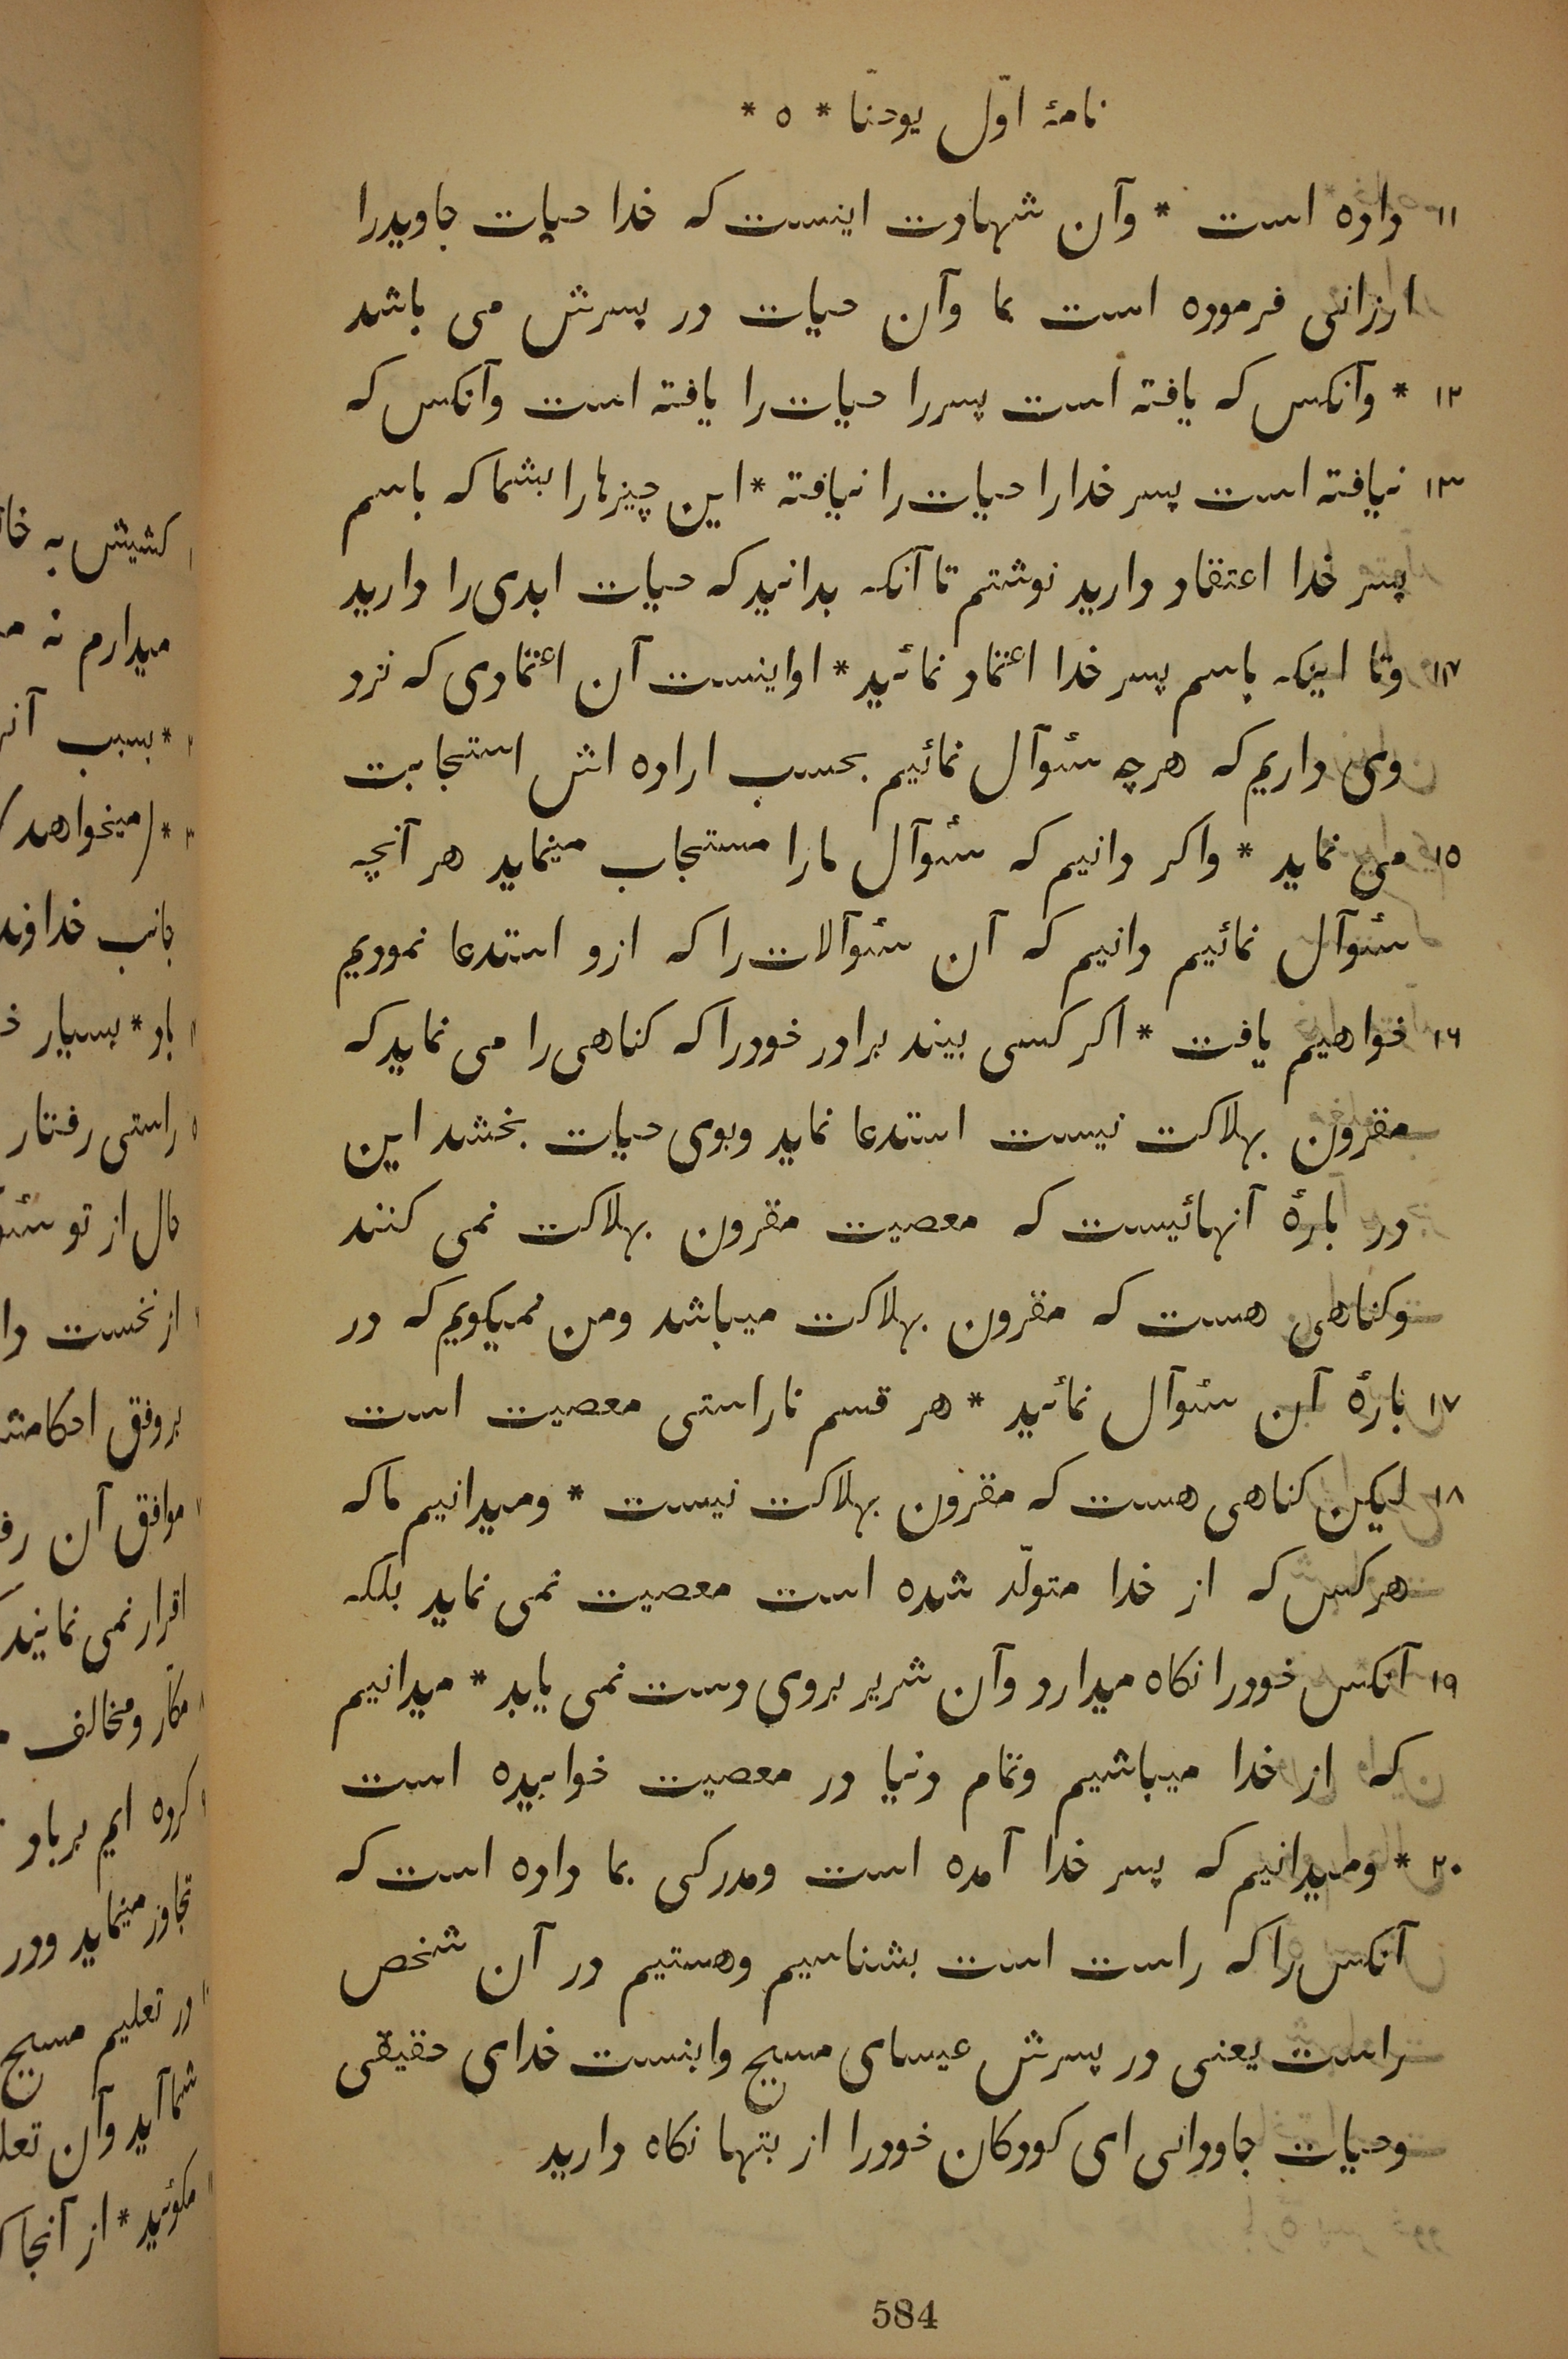 نامهٔ اوّل یوحنّا * ٥ *
١١ داده است * وآن شهادت اینست که خدا حیات جاویدرا
ارزانی فرموده است بما وآن حیات در پسرش می باشد
١٢ * وآنکس که یافته است پسررا حیات را یافته است وآنکس که
١٣ نیافته است پسر خدارا حیات را نیافته * این چیزهارا بشما که باسم
پسر خدا اعتقاد دارید نوشتم تا آنکه بدانید که حیات ابدی را دارید
١٤ وتا اینکه باسم پسر خدا اعتماد نمائید * اواینست آن اعتمادی که نزد
وی داریم که هرچه سئوآل نمائیم بحسب اراده اش استجابت
١٥ می نماید * واکر دانیم که سئوآل مارا مستجاب مینماید هر آنچه
سئوآل نمائیم دانیم که آن سئوآلات را که ازو استدعا نمودیم
١٦ خواهیم یافت * اکر کسی بیند برادر خودرا که کناهی را می نماید که
مقرون بهلاکت نیست استدعا نماید وبوی حیات بخشد این
در بارهٔ آنهائیست که معصیت مقرون بهلاکت نمی کنند
وکناهی هست که مقرون بهلاکت میباشد ومن نمیکویم که در
١٧ بارهٔ آن سئوآل نمائید * هر قسم ناراستی معصیت است
١٨ لیکن کناهی هست که مقرون بهلاکت نیست * ومیدانیم ما که
هرکس که از خدا متولّد شده است معصیت نمی نماید بلکه
١٩ آنکس خودرا نکاه میدارد وآن شریر بروی دست نمی یابد * میدانیم
که از خدا میباشیم وتمام دنیا در معصیت خوابیده است
٢٠ * ومیدانیم که پسر خدا آمده است ومدرکی بما داده است که
آنکس را که راست است بشناسیم وهستیم در آن شخص
راست یعنی در پسرش عیسای مسیح واینست خدای حقیقی
وحیات جاودانی ای کودکان خودرا از بتها نکاه دارید
584
کشیش به
میدارم نه
* بسبب
* میخواهد
جانب
باد * بسیار
راستی رفتار
مال از تو
از نخست
بروفق
موافق آن
اقرار نمی نمایند
مکّار ومخالف
کرده ایم برباد
تجاوز مینماید ودر
در تعلیم مسیح
شما آید وآن
مکوئید * از